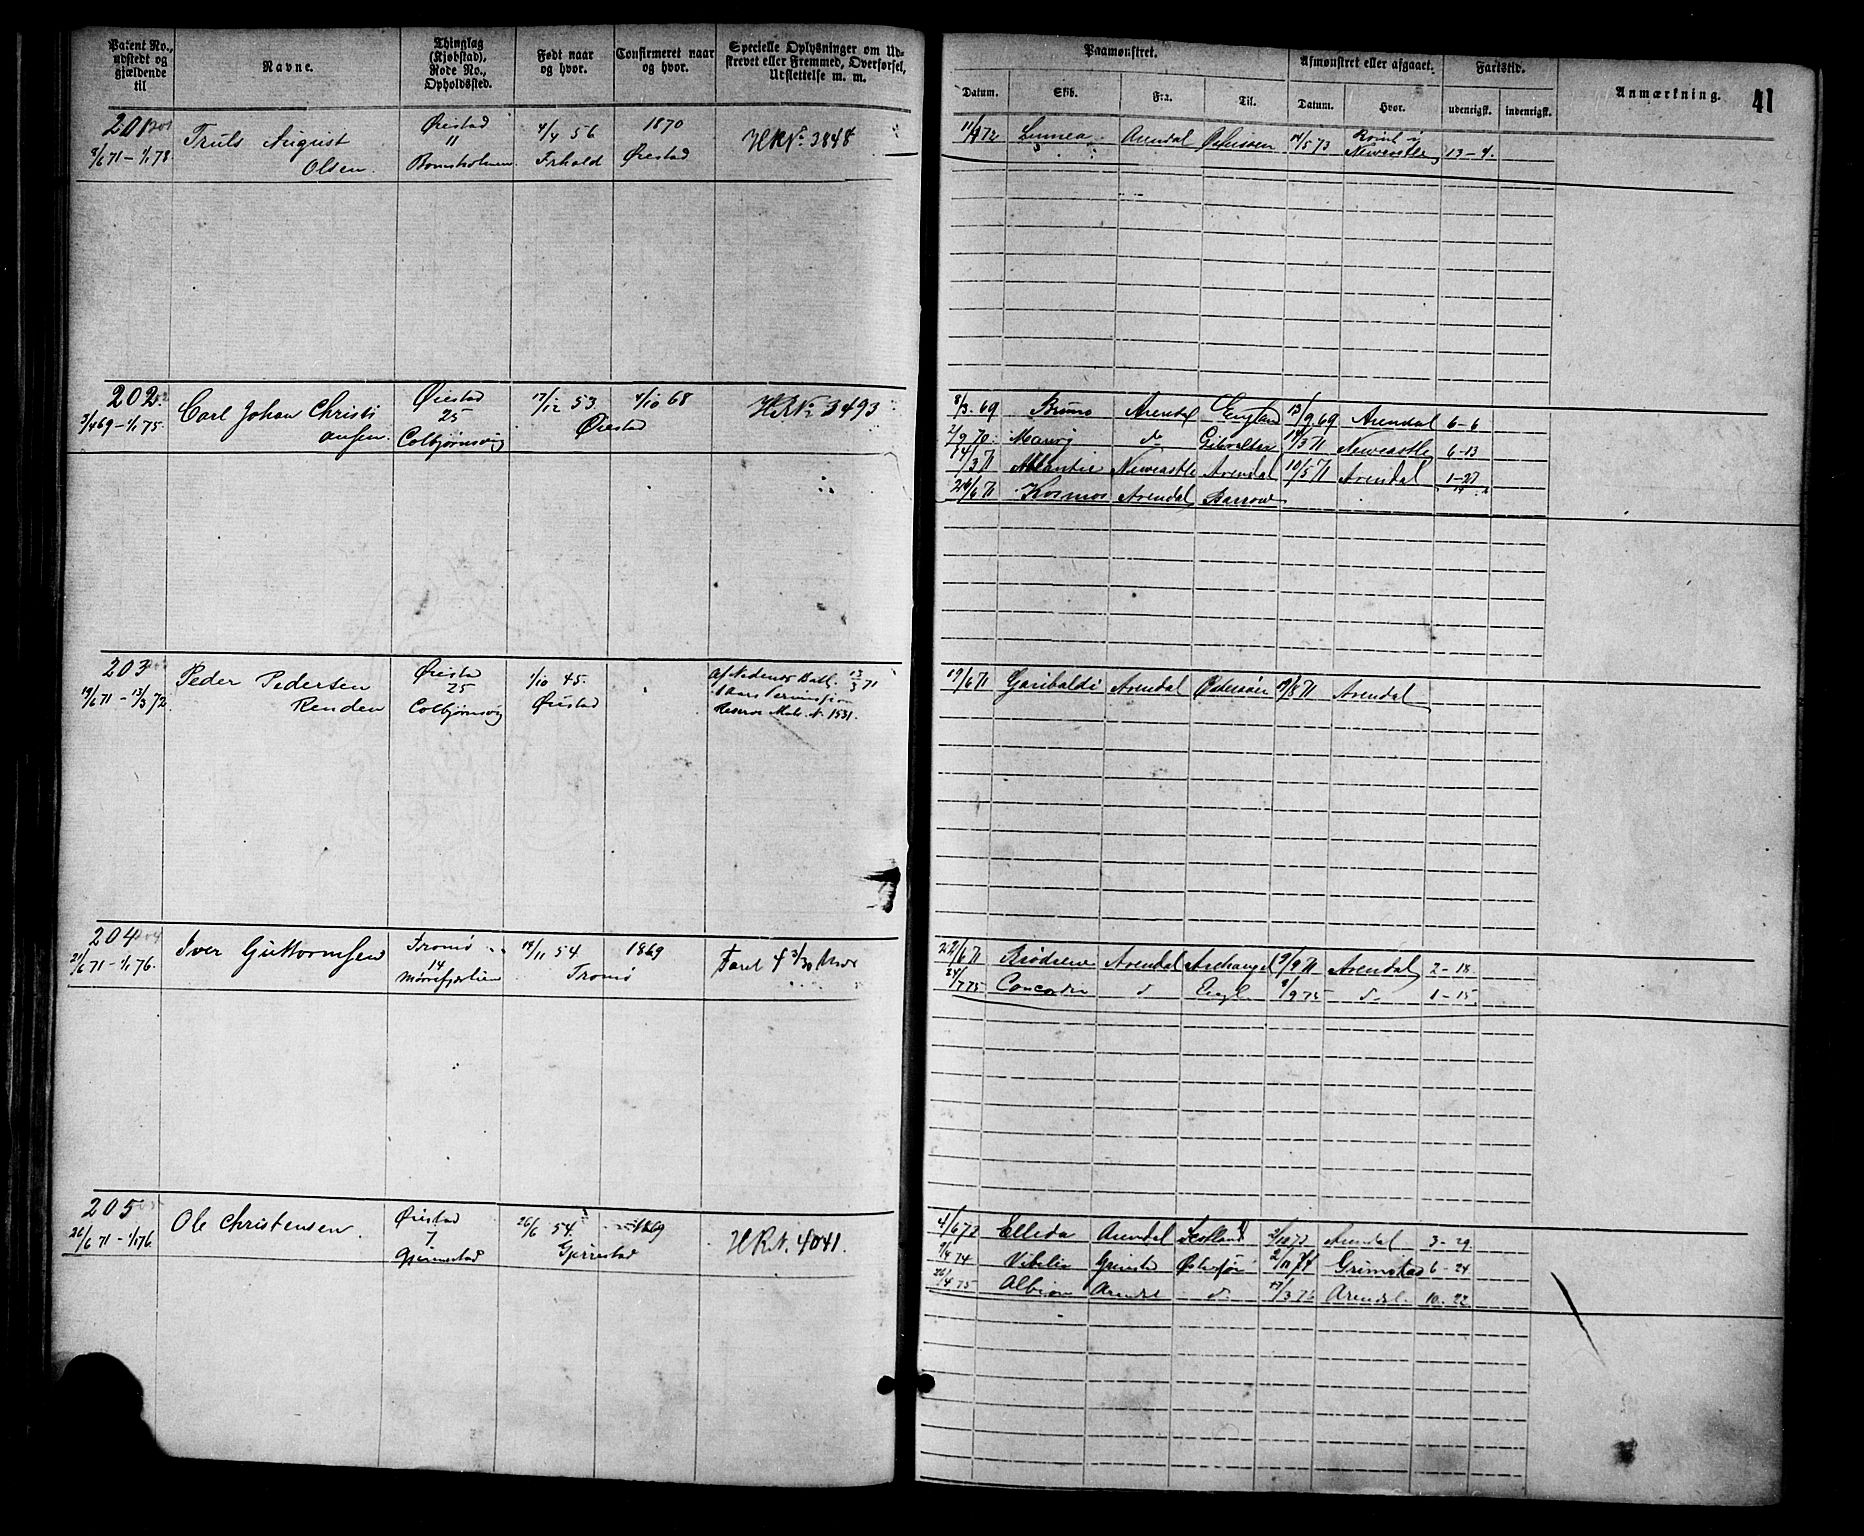 Patent No., udstedt og gjældende til
Navne.
Thinglag (Kjøbstad), Rode No., Opholdssted.
Født naar og hvor.
Confirmeret naar og hvor.
Specielle Oplysninger om Udskrevet eller Fremmed, Overførsel, Udslettelse m. m.
Paamønstret.
Afmønstret eller afgaaet.
Fartstid.
Anmærkning.
41
Datum. Skib. Fra. Til. Datum. Hvor. udenrigsk. indenrigsk.
201 Truls August Øiestad 4/4 56 1870 HRNo. 3848
8/6 71 – 1/1 78 Olsen. 11 Øiestad
Linnea Arendal 14/5 73 Newcastle 13 – 4.
202. Carl Johan Christiansen. Øiestad 17/12 53 4/10 68 HRNo 3493
3/4 69 – 1/1 75. 25 Øiestad
Colbjørnsvig
8/3. 69 Bruno Arendal England 13/9 69 Arendal 6 – 6
2/9 70. do Gibralter 14/3 71 Newcastle 6 – 13
14/3 71 Atlantic Newcastle Arendal 10/5 71 Arendal 1 – 27
24/6 71 Kosmos Arendal Barrow
203 Peder Pedersen Øiestad 1/10 45. Af Nedenæs Batl. 13/3 71
19/6 71 – 13/3 72 Renden 25 Øiestad
Colbjørnsvig Reserve No. 1531.
19/6 71 Garibaldi Arendal Østersøen 19/8 71 Arendal
204 Iver Guttormsen Tromø 19/11 54 1869
21/6 71 – 1/1 76. 14 Tromø
22/6 71 Arendal Archangel 9/9 71 Arendal 2 – 18
24/7 75 Concordia d Engl. 8/9 75 d 1 – 15
205 Ole Christensen Øiestad 26/6 54. 1869 HRN. 4041.
26/6 71 – 1/1 76. 7 Gjerrestad
4/6 72 Ellida Arendal Scotland Arendal 3 – 29
9/4 74 Vibilia Grimstad Østersøe 2/11 74 Grimstad 6 – 24
26/4 75 Albion Arendal d. 17/3 76 Arendal. 10 – 22